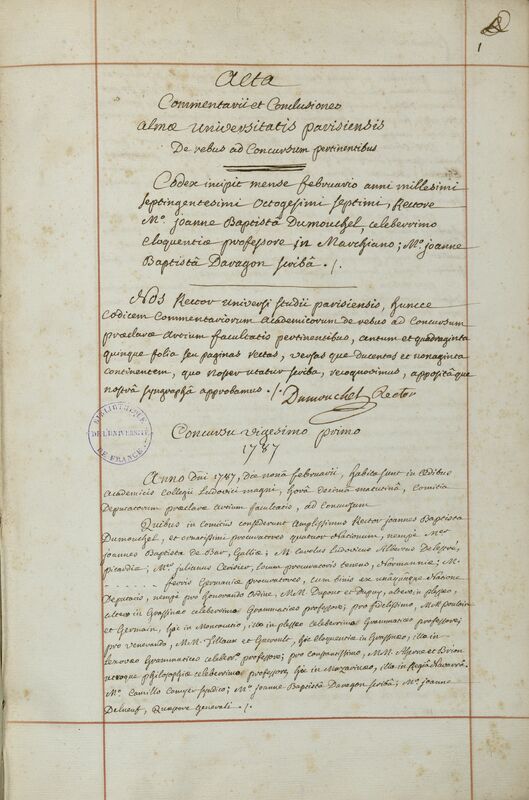 1
Acta
Commentarii et Conclusiones
almæ universitatis parisiensis
De rebus ad Concursum pertinentibus
Codex incipit mense februario anni millesimi
septingentesimi octogesimi septimi, Rectore
Mo. joanne Baptistâ Dumouchel, celeberrimo
eloquentiæ professore in Marchiano; Mo. joanne
Baptistâ Daragon scribâ ./.
Nos Rector universi studii parisiensis, huncce
Codicem Commentariorum Academicorum de rebus ad Concursum
præclaræ Artium facultatis pertinentibus, centum et quadraginta
quinque folia seu paginas rectas, versas que ducentas et nonaginta
continentem, quo noster utatur scriba, recognovimus, appositâque
nostrâ syngraphâ approbamus ./. Dumouchel Rector
BIBLIOTHEQUE
DE L'UNIVERSITE
DE FRANCE
Concursu vigesimo primo
1787
Anno Dni 1787, die nonâ februarii, habita sunt in Ædibus
Academicis Collegii Ludovici magni, horâ decimâ matutinâ, Comitia
Deputatorum præclaræ Artium facultatis, ad Concursum
Quibus in Comitiis consederunt Amplissimus Rector joannes Baptista
Dumouchel, et ornatissimi procuratores quatuor Nationum, nempè Mr.
joannes Baptista de Bar, Galliæ; M. Carolus Ludovicus Albericus Delefore,
picardiæ; Mr. julianus Cerisier, locum procuratoris tenens, Normanniæ; M.
ferris Germaniæ procuratores, cum binis ex unaquâque Natione
Deputatis, nempè pro honorandâ Natione, M.M. Dupont et Duguy, alter in plesseo,
alter in Grassinæo celeberrimi Grammatices professores; pro fidelissimâ, MM.
et Germain, hic in Montacutio, ille in plesseo celeberrimi Grammatices professores;
pro venerandâ, M.M. Tillaux et Guéroult, hic eloquentiæ in Grassinæo, ille in
Lexoveo Grammatices celeberr. professores; pro constantissimâ, M.M. et Brion
uterque philosophiæ celeberrimus professor, hic in Mazarinæo, ille in Regiâ Navarrâ.
Mo. Camillo syndico; Mo. joanne Baptistâ Daragon scribâ; Mo. joanne
Delneuf, Quæstore generali ./.